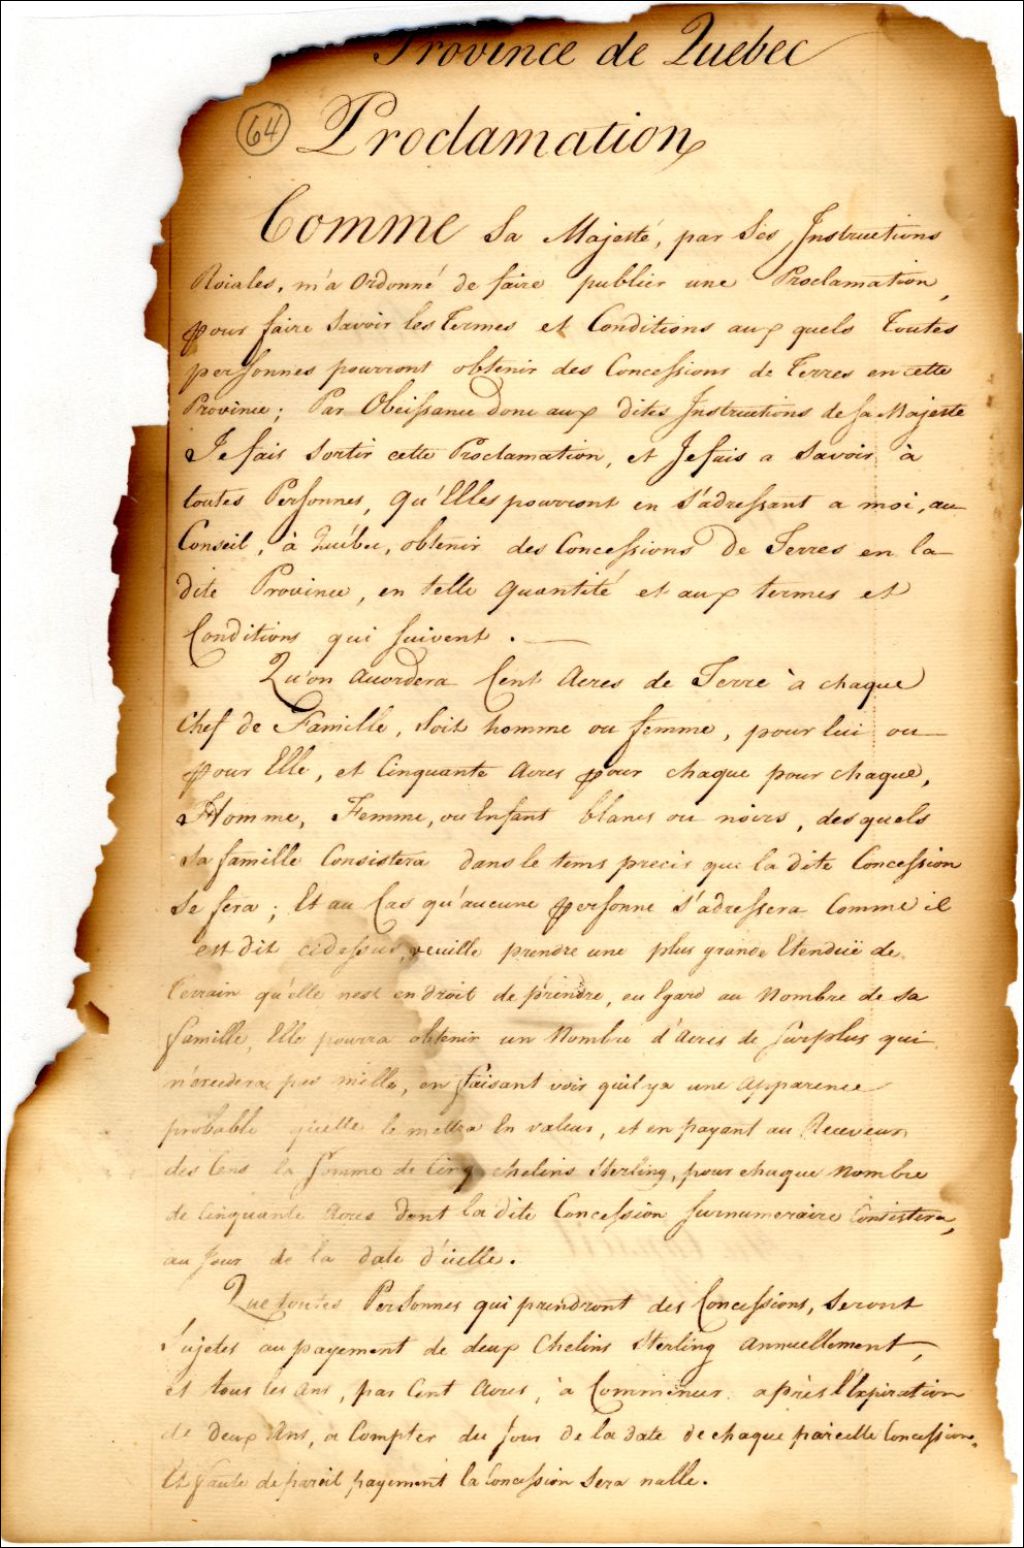 Province de Quebec
64 Proclamation
Comme Sa Majesté, par Ses Instructions
Roiales, m'a Ordonné de faire publier une Proclamation,
pour faire Savoir les Termes et Conditions aux quels Toutes
personnes pourront obtenir des Concessions de Terres en cette
Province; Par Obeissance donc aux dites Instructions de sa Majesté
Je fais Sortir cette Proclamation, et Je fais a Savoir à
toutes Personnes, qu'Elles pourront en s'adressant a moi, au
Conseil, à Québec, obtenir des Concessions De Terres en la
dite Province, en telle quantité et aux termes et
Conditions qui suivent.
Qu'on accordera Cent Acres de Terre à chaque
Chef de Famille, soit homme ou femme, pour lui ou
pour Elle, et Cinquante Acres pour chaque pour chaque,
Homme, Femme, ou Enfant blancs ou noirs, des quels
sa famille Consistera dans le tems precis que la dite Concession
se fera; Et au Cas qu'aucune personne s'adressera Comme il
est dit cidessus, veuille prendre une plus grande Etenduë de
terrain qu'elle nest en droit de prendre, eu Egard au Nombre de sa
famille, Elle pourra obtenir un Nombre d'Acres de surplus qui
n'excedera pas mille, en faisant voir quil ya une apparence
probable quelle le mettra En valeur, et en payant au Receveur
des Cens la somme de Cinq chelins Sterling, pour chaque Nombre
de Cinquante Acres dont la dite Concession surnumeraire Consistera,
au Jour de la date d'icelle.
Que toutes Personnes qui prendront des Concessions, seront
Sujetes au payement de deux Chelins Sterling annuellement,
et tous les ans, par Cent Acres, à Commencer après l'Expiration
de Deux Ans, a Compter du Jour De la date de chaque pareille Concession,
Et faute de pareil payement la Concession Sera nulle.